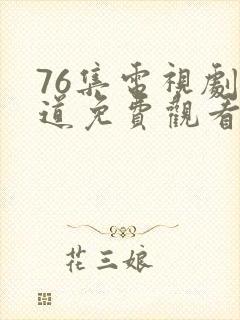 76集電視劇
道免費觀看
花三娘